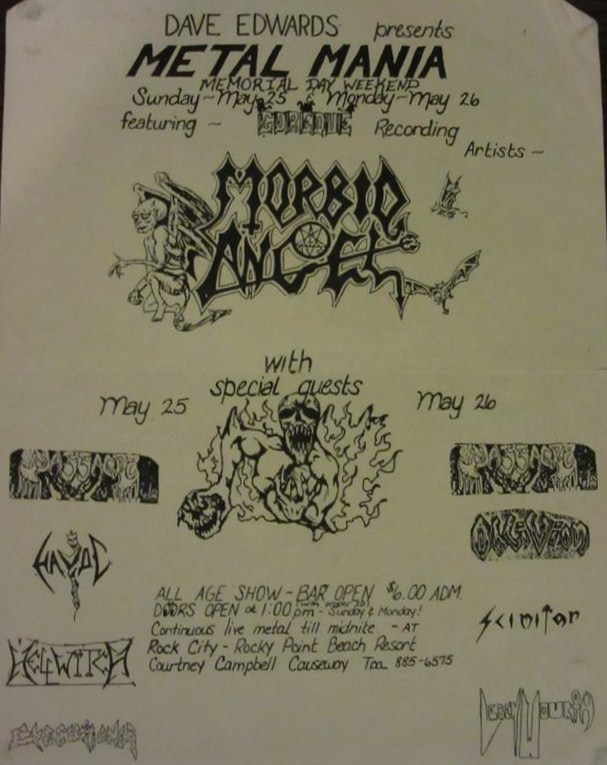 DAVE EDWARDS presents
METAL MANIA
MEMORIAL DAY WEEKEND
Sunday~May 25 & Monday~May 26
featuring ~ GOREQUE Recording
Artists ~
MORBID
ANGEL
with
special guests
May 25
May 26
MASSACRE
MASSACRE
HAVOC
OBLIVION
ALL AGE SHOW - BAR OPEN $6.00 ADM.
DOORS OPEN at 1:00 pm - Sunday & Monday!
Continuous live metal till midnite - AT
Rock City - Rocky Point Beach Resort
Courtney Campbell Causeway Tpa. 885-6575
Scimitar
HELLWITCH
EXECUTIONER